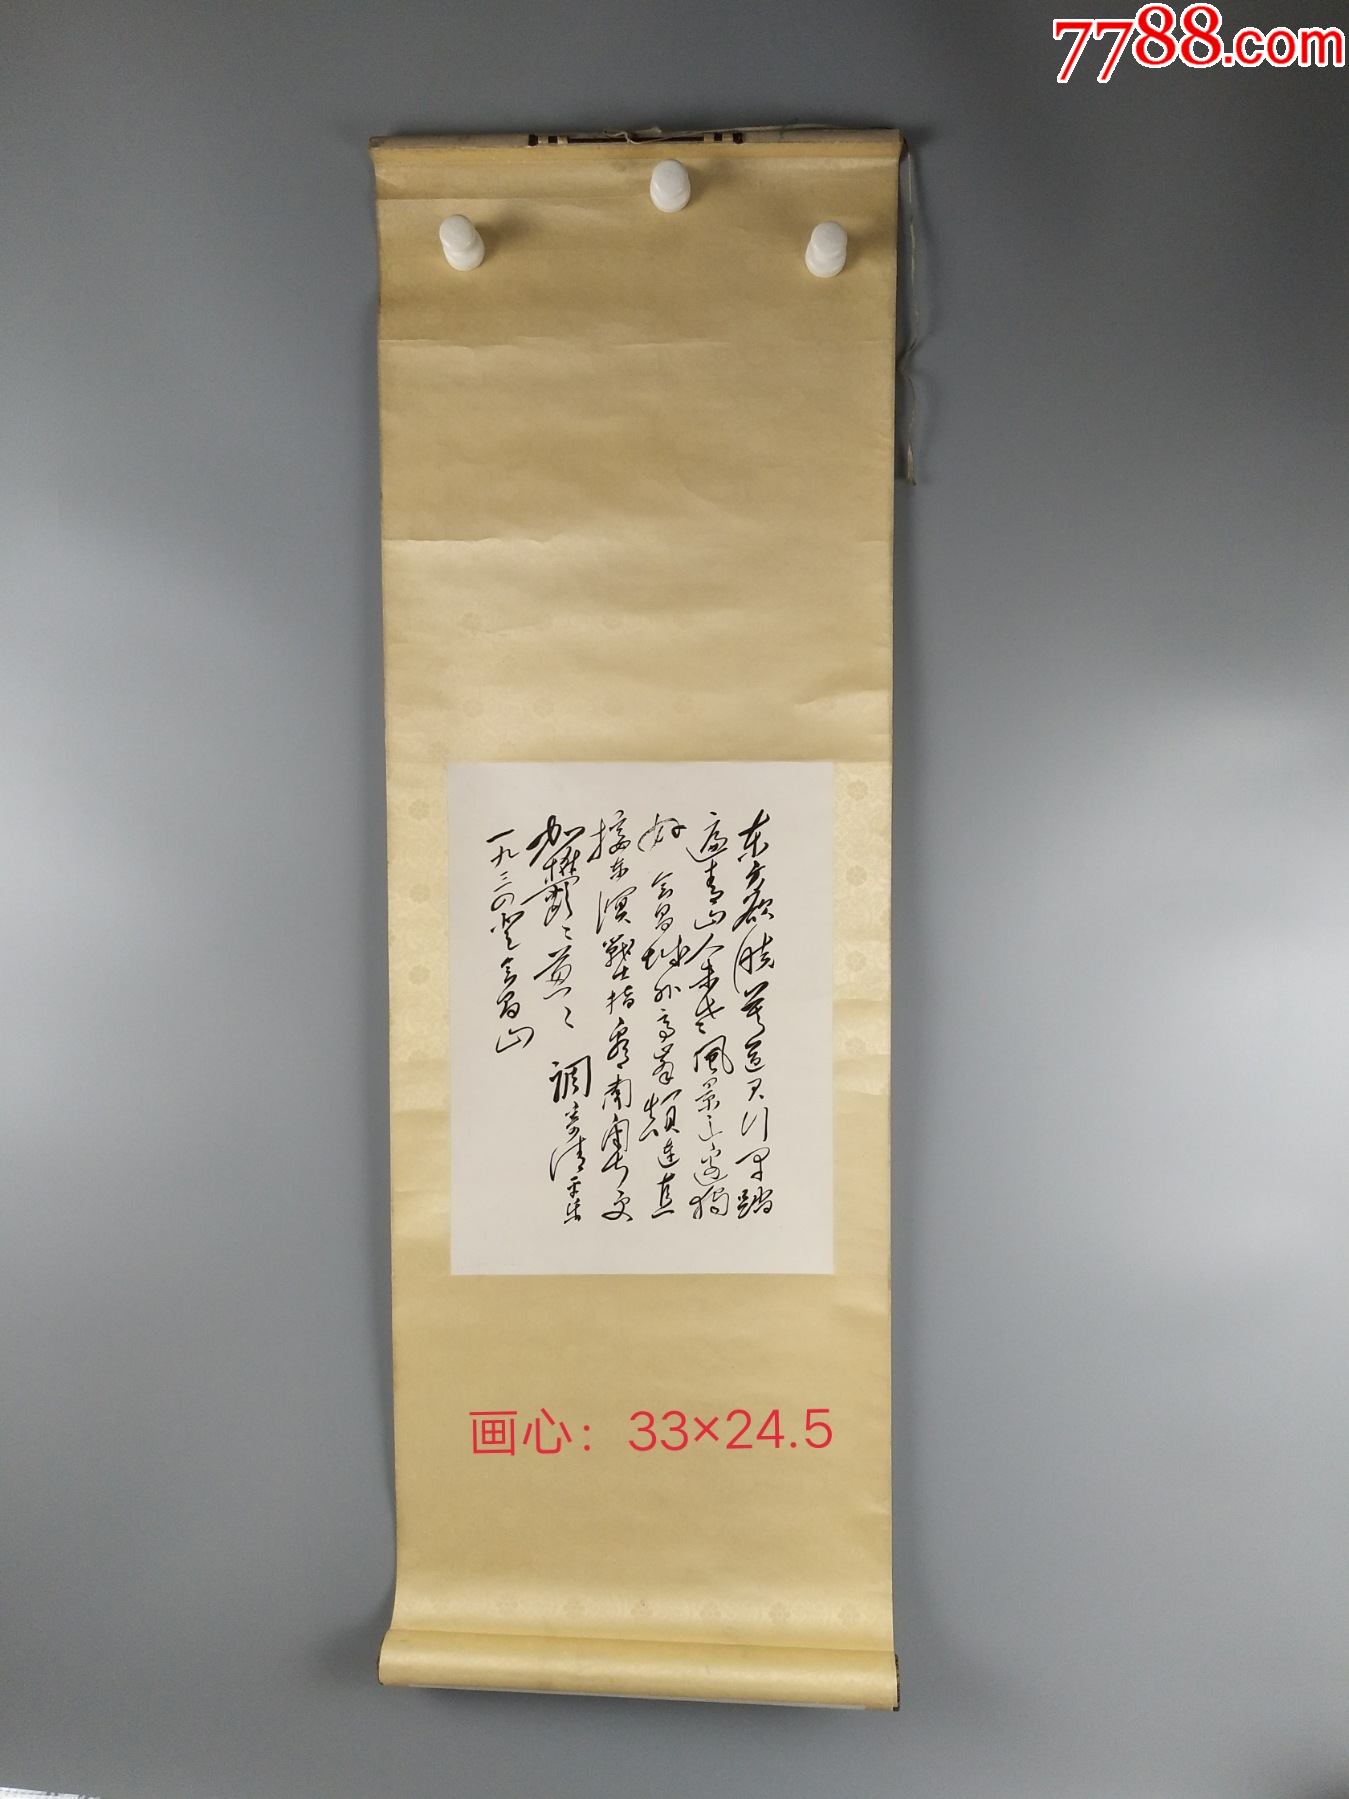 7788.com
东方欲晓莫道君行早踏
遍青山人未老风景这边独
好 会昌城外高峰颠连直
接东溟战士指看南粤更
加郁郁葱葱 调寄清平乐
一九三四登会昌山
画心：33×24.5